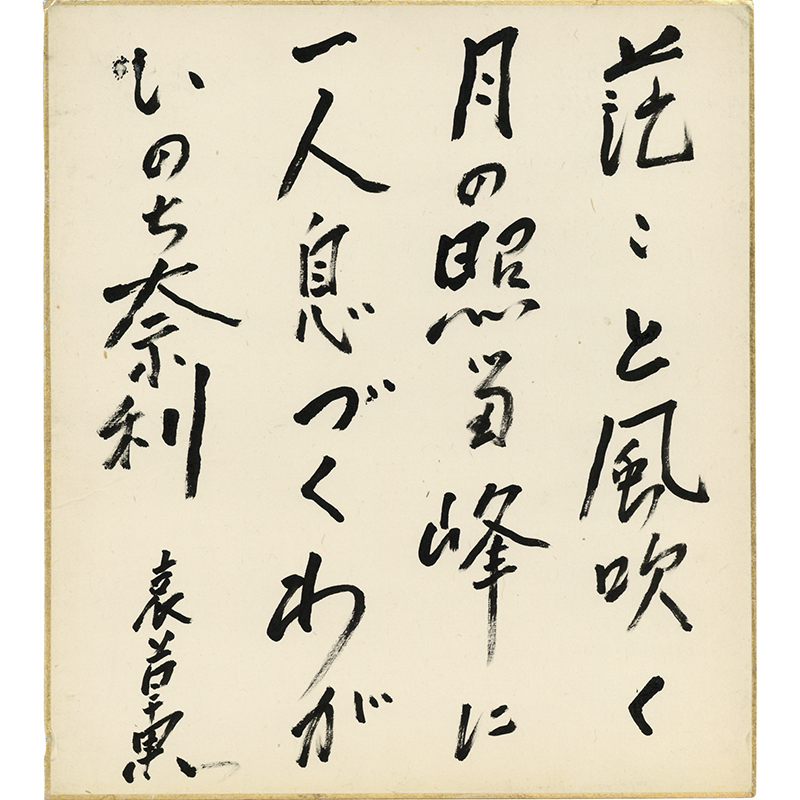 茫〻と風吹く
月の照留峰に
一人息づくわが
いのち奈利 哀草果